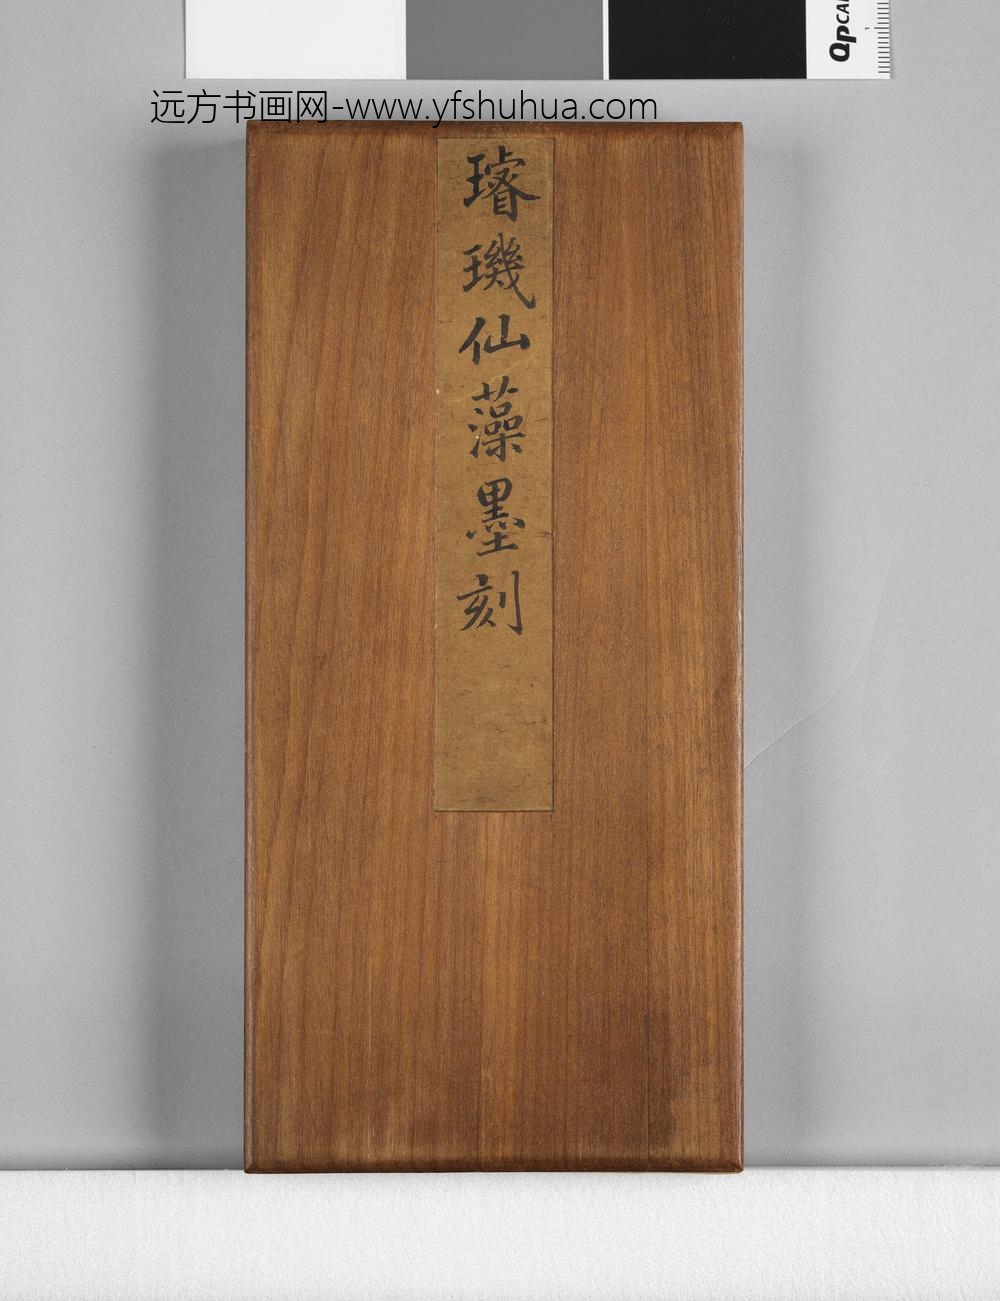 QPCA
远方书画网-www.yfshuhua.com
璿璣仙藻墨刻